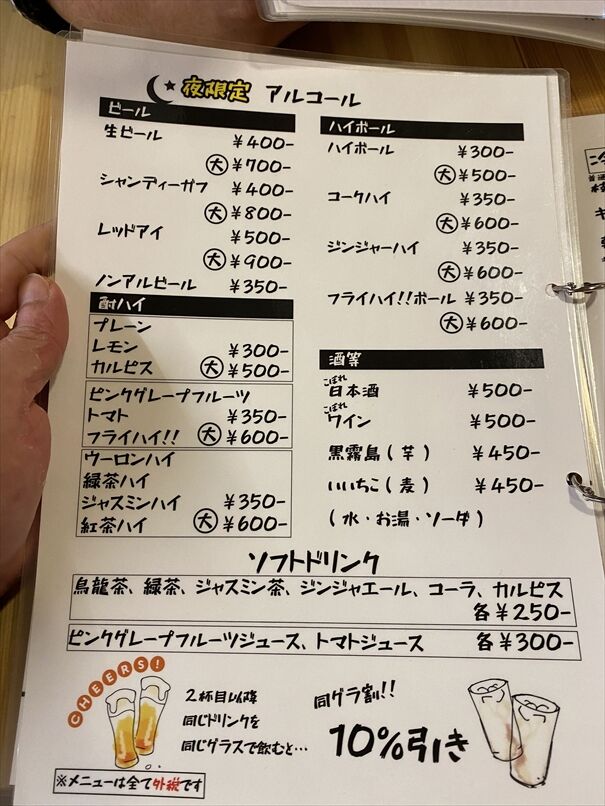 夜限定 アルコール
ビール
生ビール ¥400-
大 ¥700-
シャンディーガフ ¥400-
大 ¥800-
レッドアイ ¥500-
大 ¥900-
ノンアルビール ¥350-
酎ハイ
プレーン
レモン ¥300-
カルピス 大 ¥500-
ピンクグレープフルーツ
トマト ¥350-
フライハイ!! 大 ¥600-
ウーロンハイ
緑茶ハイ
ジャスミンハイ ¥350-
紅茶ハイ 大 ¥600-
ハイボール
ハイボール ¥300-
大 ¥500-
コークハイ ¥350-
大 ¥600-
ジンジャーハイ ¥350-
大 ¥600-
フライハイ!!ボール ¥350-
大 ¥600-
酒等
こぼれ
日本酒 ¥500-
こぼれ
ワイン ¥500-
黒霧島(芋) ¥450-
いいちこ(麦) ¥450-
(水・お湯・ソーダ)
ソフトドリンク
烏龍茶、緑茶、ジャスミン茶、ジンジャエール、コーラ、カルピス
各¥250-
ピンクグレープフルーツジュース、トマトジュース 各¥300-
CHEERS!
2杯目以降
同じドリンクを
同じグラスで飲むと…
同グラ割!!
10%引き
※メニューは全て外税です